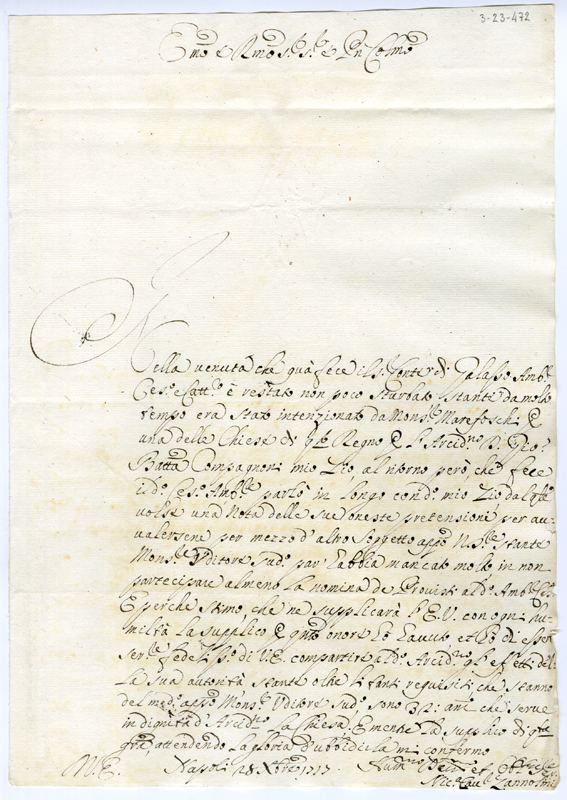 3-23-472
Emo e Rmo Sr. Sr. e Pn Colmo
Nella venuta che quà fece il Sr. Conte di Galasso Ambr.
Ces.o e Catt.o è restato non poco sturbato stante da molto
tempo era stato intenzionato da Monsr. Marefoschi
una delle Chiese di Regno Arcid.no D. Gio:
Batta Compagnoni mio Zio al ritorno però, che fece
il d.o Ces.o Ambre parlò in longo con d.o mio Zio dal qle
volse una Nota delle sue oneste pretensioni per av-
valersene per mezzo d'altro soggetto appo N. Sre stante
Monsre Uditore sud.o par l'abbia mancato molto in non
partecipare almeno la nomina de Provisti al d.o Ambre
E perche stimo che ne supplicarà l'E.V. con ogni hu-
miltà la supplico
ser.le fedeliss.o di V.E. compartire al d.o Arcid.no gl'effetti del-
la sua autorità stante oltre li tanti requisiti che stanno
del med.o appo Monsr. Uditore sud.o sono 32: anni che serve
in dignità di Arcid.no la Chiesa la supplico di qsta
gra, attendendo la gloria d'ubbidirla mi confermo
V.E. Napoli 28 Xbre 1717